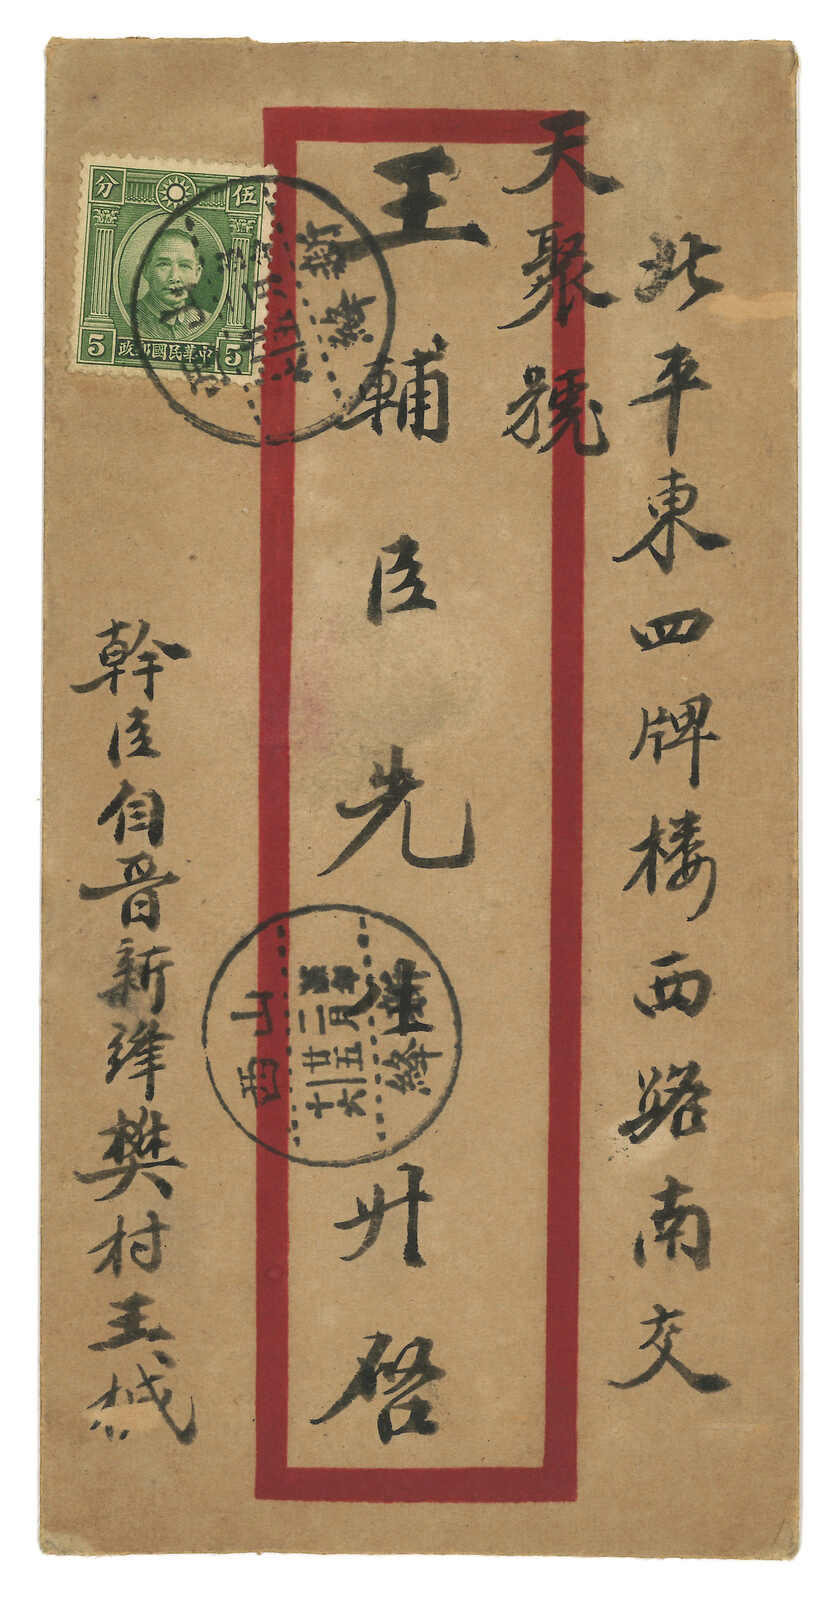 北平東四牌楼西路南交
天聚號
王輔臣先生升啓
幹臣自晋新絳樊村王械
伍分
5 中華民國郵政 5
山西
二十六年
二月廿五
新絳